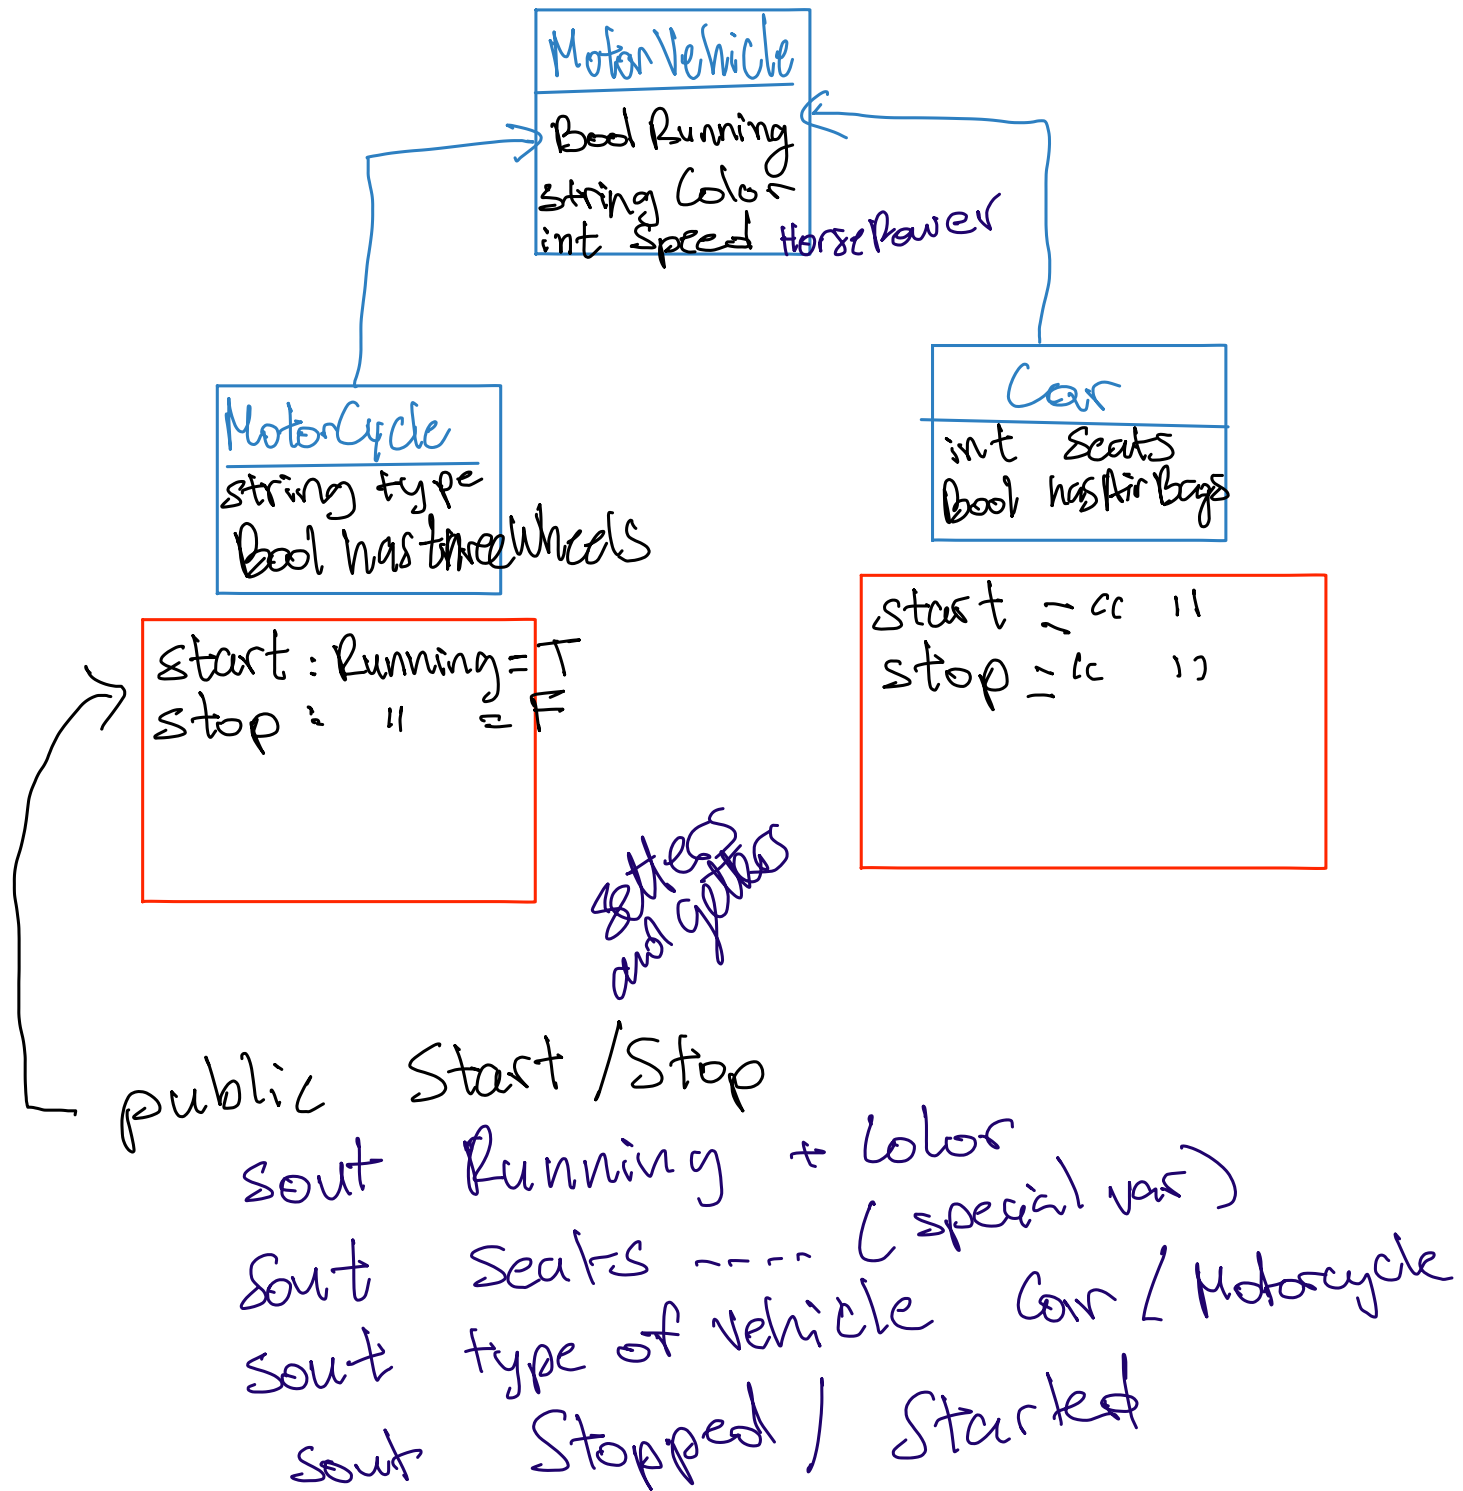 MotorVehicle
Bool Running
string Color
int Speed HorsePower
MotorCycle
string type
Bool hasthreeWheels
Car
int Seats
Bool hasAirBags
start : Running = T
stop : " = F
start = " "
stop = " "
setters
and getters
public Start / Stop
sout Running + Color
sout seats ---- (special var)
sout type of vehicle Car / Motorcycle
sout Stopped / Started